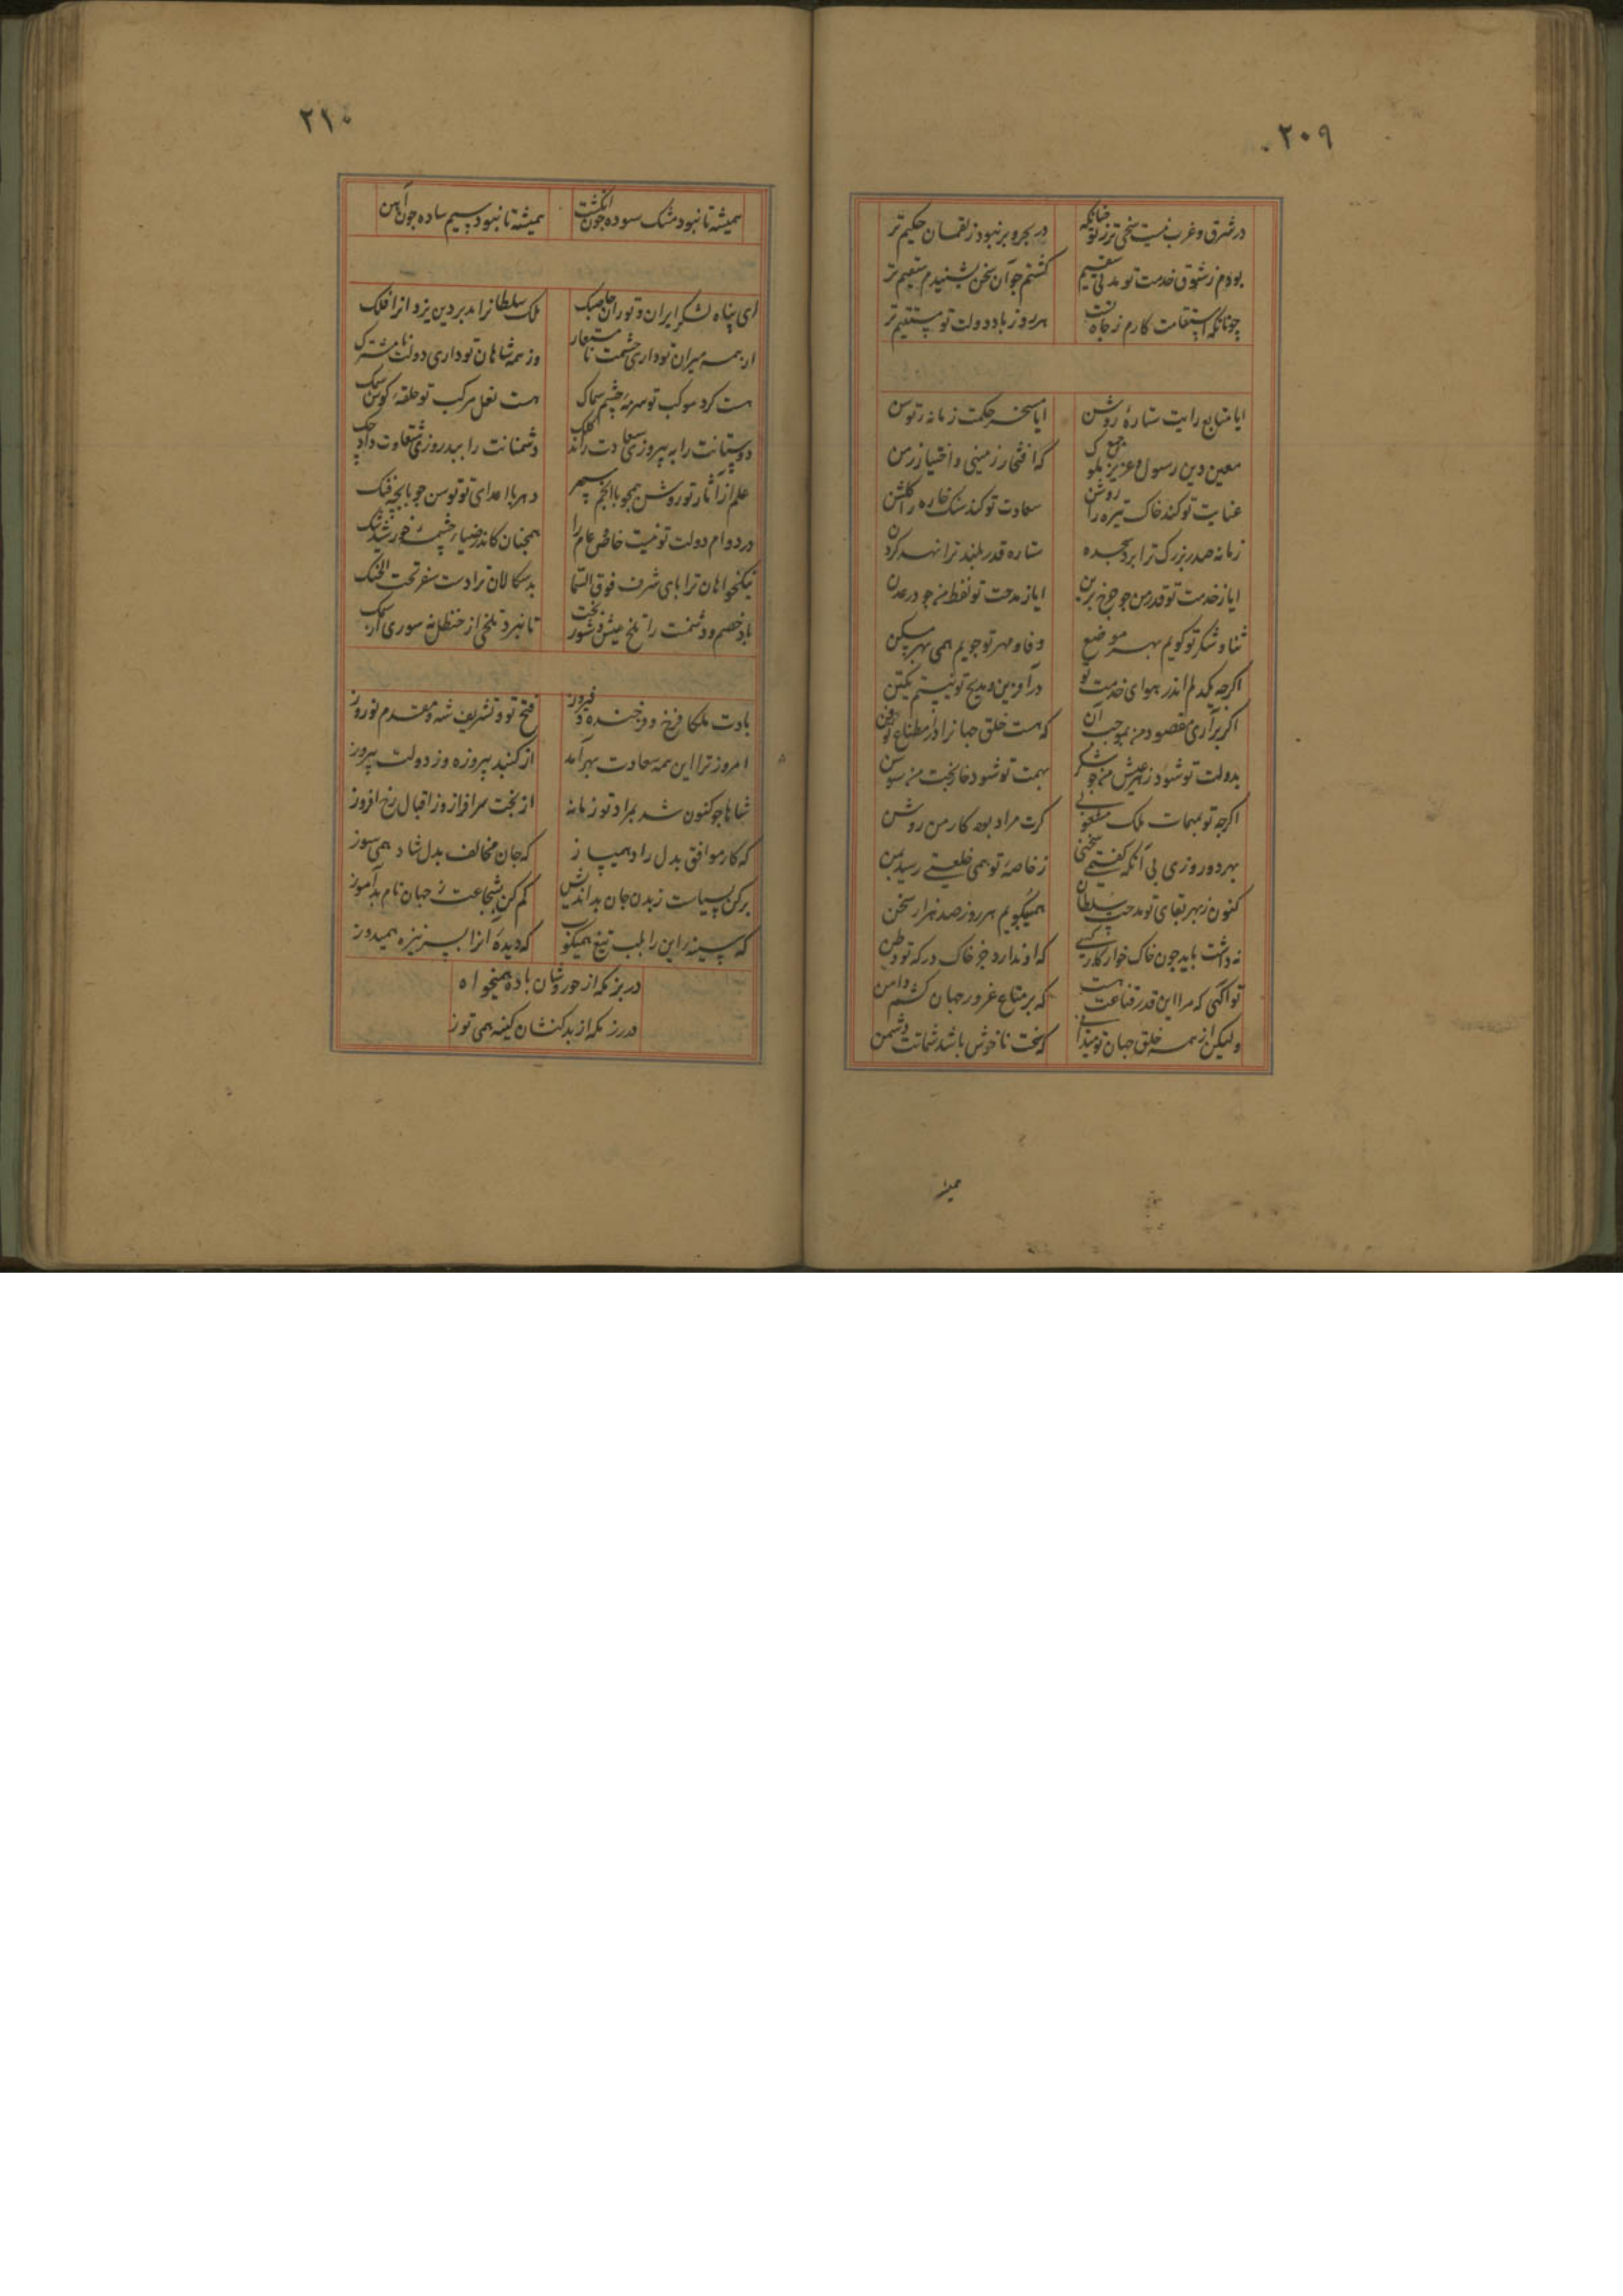 ۲۰۹
در شرق و غرب نیست سخی تر ز تو چنانکه در بحر و بر نبود ز لقمان حکیم تر
بودم ز شوق خدمت تو مدتی سقیم گشتم جو آن سخن بشنیدم سقیم تر
چونانکه استقامت کارم ز جاه تست هر روز باد دولت تو مستقیم تر
ایا متابع رایت ستارهٔ روشن ایا مسخر حکمت زمانه توسن
معین دین رسول و عزیز ملو که افتخار زمینی و اختیار زمن
عنایت تو کند خاک تیره را روشن سعادت تو کند سنک خاره را گلشن
زمانه صدر بزرک ترا برد سجده ستاره قدر بلند ترا نهد کردن
ایا ز خدمت تو قدر من جو جرخ برین ایا ز مدحت تو لفظ من جو در عدن
ثنا و شکر تو کویم بهر موضع وفا و مهر تو جویم همی بهر مسکن
اکرجه یکدلم اندر هوای خدمت تو در آفرین و مدیح تو نیستم یکتن
اکر برآری مقصود من بموجب آن که هست خلق جهانرا
بدولت تو شود زهر عیش من جو شکر بهمت تو شود خار بخت من سوسن
اکرجه تو بمهمات ملک مشغولی کرت مراد بود کار من روشن
بهر دو روزی بی آنکه گفتمی سخنی ز خاصهٔ تو همی خلعتی رسید بمن
کنون ز بهر بقای تو مدحت سلطان همیکویم هر روز صد هزار سخن
نه داشت باید جون خاک خوار کار کسی که او ندارد جز خاک درکه تو وطن
تو آکهی که مرا این قدر قناعت هست که بر متاع غرور جهان کشم دامن
ولیکن از همه خلق جهان تو میدانی که سخت ناخوش باشد شماتت دشمن
همیشه
۲۱۰
همیشه تا نبود مشک سوده جون انکشت همیشه تا نبود سیم ساده جون آهن
ای پناه لشکر ایران و توران حاجبک ملک سلطانرا مدبر دین یزدانرا فلک
از همه میران تو داری حشمت نا مستعار وز همه شاهان تو داری دولت نا مشترک
هست کرد موکب تو سرمهٔ چشم سماک هست نعل مرکب تو حلقهٔ کوش سمک
دوستانت را به پیروزی سعادت راند کلک دشمنانت را ببد روزی شقاوت داد چک
علم از آثار تو روشن همجو با انجم سپهر دهر با اعدای تو توسن جو با بجه فنک
در دوام دولت تو نیست خاص و عام را همجنان کاندر ضیاء چشمهٔ خورشید شک
نیکخواهان ترا پای شرف فوق السما بدسکالان ترا دست سفر تحت الحنک
باد خصم و دشمنت را تلخ عیش و شور بخت تا نبرد تلخی از حنظل نه شوری از نمک
بادت ملکا فرخ و فرخنده و فیروز فتح تو و تشریف شه و مقدم نوروز
امروز ترا این همه سعادت بهر آمد از کنبد پیروزه وز دولت پیروز
شاها جو کنون شد بمراد تو زمانه از بخت سرافراز وز اقبال رخ افروز
که کار موافق بدل راد همیساز که جان مخالف بدل شاد همی سوز
برکن بسیاست ز بدن جان بداندیش کم کن بشجاعت ز جهان نام بدآموز
که سینه این را بلب تیغ همیکوب که دیدهٔ آنرا بسر نیزه همیدوز
در بزمکه از حوروشان باده همیخواه
در رزمکه از بدکنشان کینه همی توز